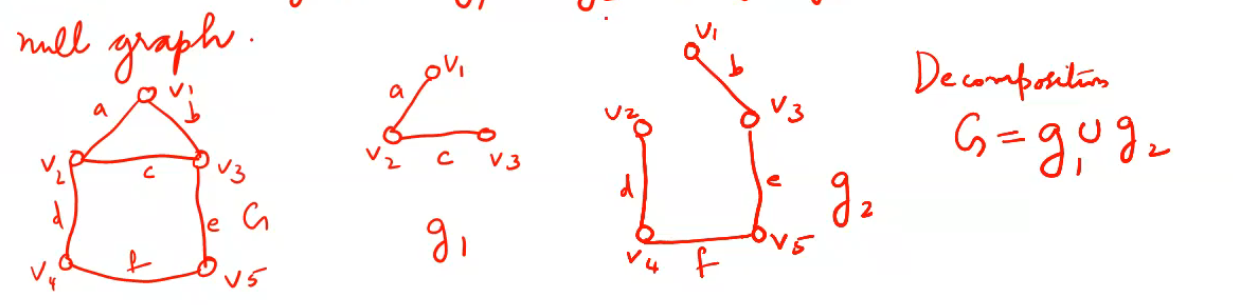 null graph.
a
v1
b
v2
c
v3
d
e
G
v4
f
v5
a
v1
v2
c
v3
g1
v1
b
v2
v3
d
e
g2
v4
f
v5
Decomposition
G = g1 ∪ g2